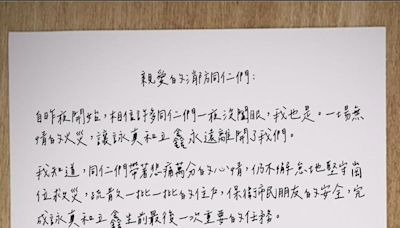 親愛的消防同仁們：
自昨夜開始，相信許多同仁們一夜沒闔眼，我也是。一場無
情的火災，讓詠真和立鑫永遠離開了我們。
我知道，同仁們帶著悲痛萬分的心情，仍不懈怠地堅守崗
位救災，疏散一批一批的住戶，保衛市民朋友的安全，完
成詠真和立鑫生前最後一次重要的任務。